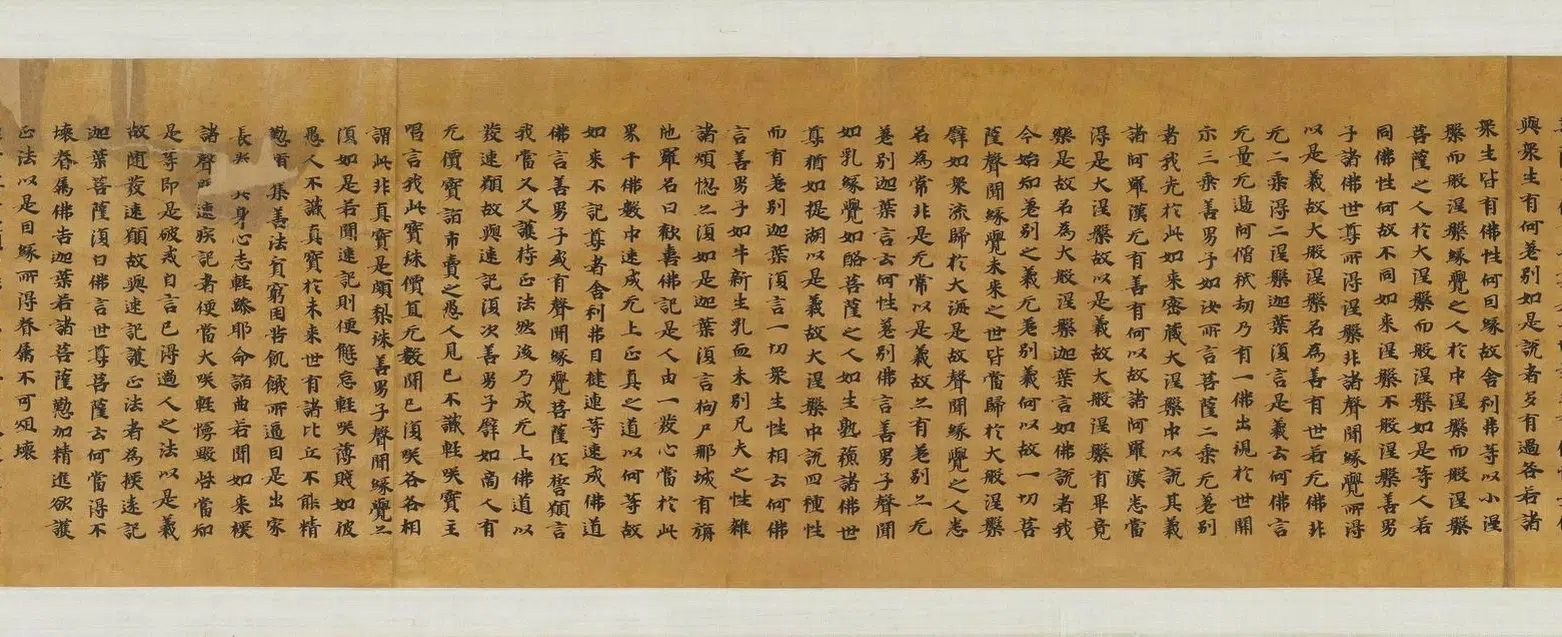 與衆生有何差別如是說者多有過咎若諸
衆生皆有佛性何因緣故舍利弗等以小涅
槃而般涅槃緣覺之人於中涅槃而般涅槃
菩薩之人於大涅槃而般涅槃如是等人若
同佛性何故不同如来涅槃不般涅槃善男
子諸佛世尊所得涅槃非諸聲聞緣覺所得
以是義故大般涅槃名為善有世若无佛非
无二乘得二涅槃迦葉湏言是義云何佛言
无量无邊阿僧祇劫乃有一佛出現於世開
示三乘善男子如汝所言菩薩二乘无差別
者我先於此如来密藏大涅槃中以說其義
諸阿羅漢无有善有何以故諸阿羅漢悉當
得是大涅槃故以是義故大般涅槃有畢竟
樂是故名為大般涅槃迦葉言如佛說者我
今始知差別之義无差別義何以故一切菩
薩聲聞緣覺未来之世皆當歸於大般涅槃
譬如衆流歸於大海是故聲聞緣覺之人悉
名為常非是无常以是義故亦有差別亦无
差別迦葉言云何性差別佛言善男子聲聞
如乳緣覺如酪菩薩之人如生熟穌諸佛世
尊猶如提湖以是義故大涅槃中說四種性
而有差別迦葉湏言一切衆生性相云何佛
言善男子如牛新生乳血未別凡夫之性雜
諸煩惱亦湏如是迦葉湏言拘尸那城有旃
陁羅名曰歡喜佛記是人由一發心當於此
界千佛數中速成无上正真之道以何等故
如来不記尊者舍利弗目揵連等速成佛道
佛言善男子或有聲聞緣覺菩薩作誓願言
我當久久護持正法然後乃成无上佛道以
發速願故與速記湏次善男子譬如商人有
无價寶詣市賣之愚人見已不識輕咲寶主
唱言我此寶珠價直无數聞已湏咲各各相
謂此非真寶是頗梨珠善男子聲聞緣覺亦
湏如是若聞速記則便懈怠輕咲薄賤如彼
愚人不識真寶於未来世有諸比丘不能精
懃集善法貧窮困苦飢餓所逼因是出家
長其身心志輕躁耶命諂曲若聞如来授
諸聲聞速疾記者便當大咲輕慢毀呰當知
是等即是破戒自言已得過人之法以是義
故随發速願故與速記護正法者為授遠記
迦葉菩薩湏白佛言世尊菩薩云何當得不
壞眷屬佛告迦葉若諸菩薩懃加精進欲護
正法以是因緣所得眷屬不可沮壞